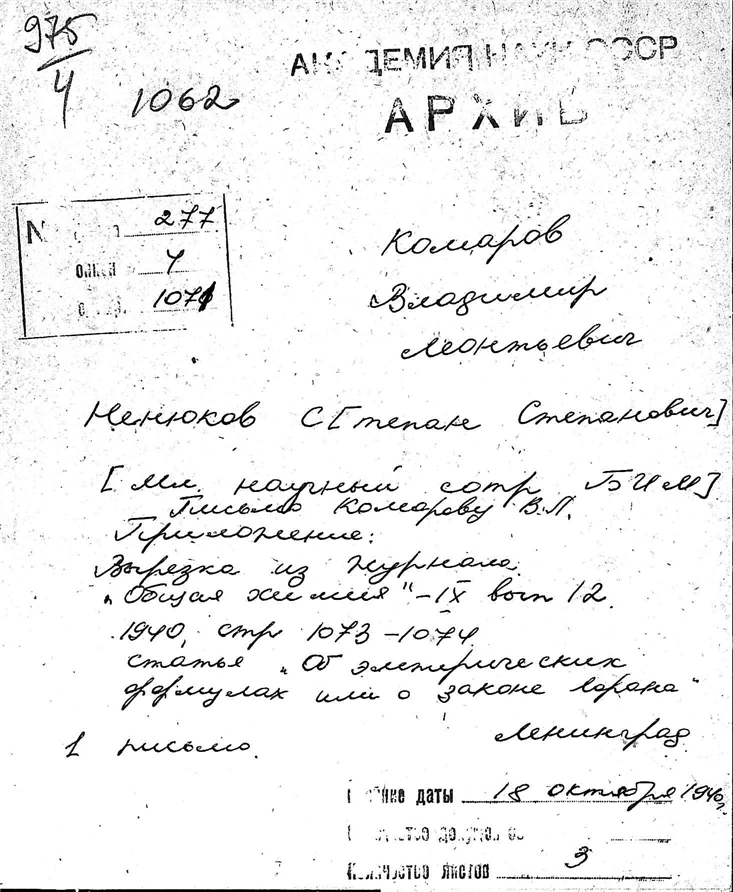 975
4
1062
АКАДЕМИЯ НАУК СССР
АРХИВ
N 277
описи 4
1071
Комаров
Владимир
Леонтьевич
Ненюков С[тепан Степанович]
[Мл. научный сотр БИМ]
Письмо Комарову В.Л.
Приложение:
Вырезка из журнала
„Общая химия" – IX вып 12
1940, стр 1073–1074
статья „Об эмпирических
формулах или о законе Лорана"
Ленинград
1 письмо.
Крайние даты 18 октября 1940 г.
Количество докумен
Количество листов 3